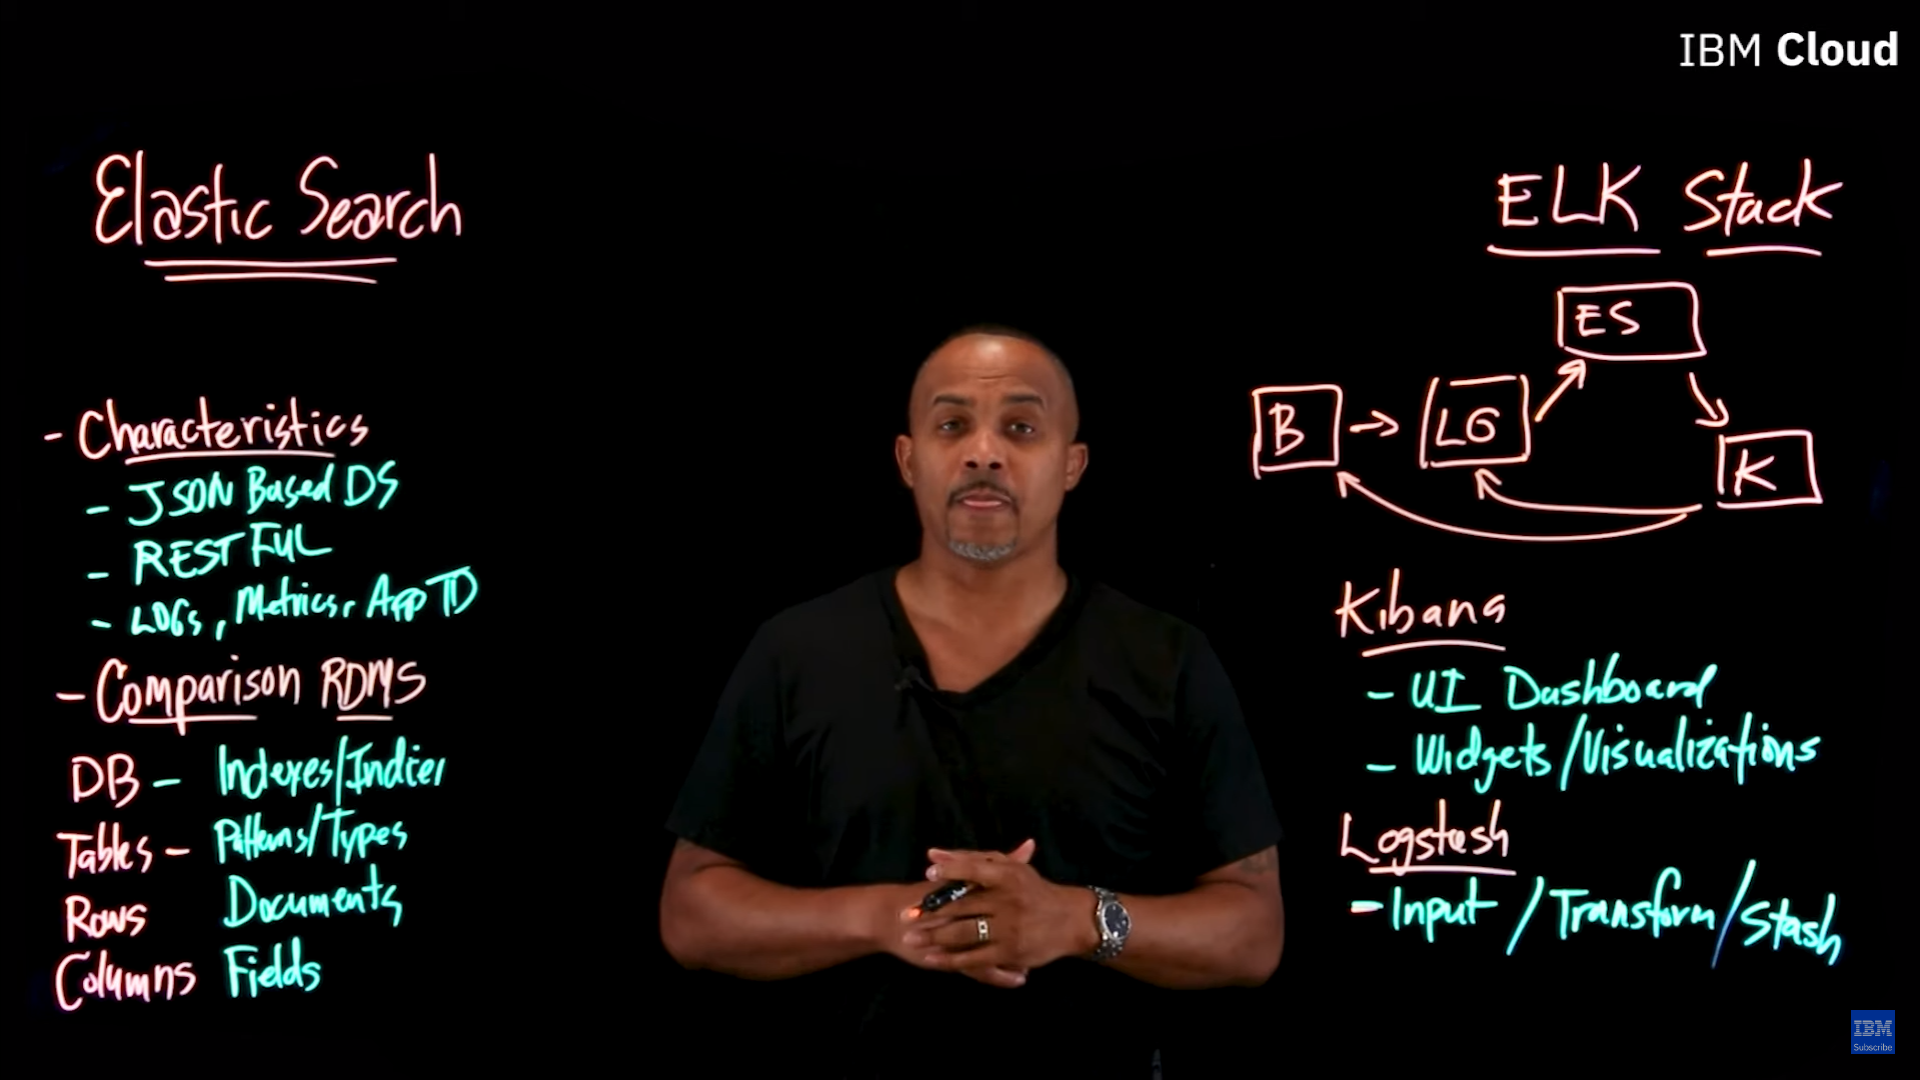 IBM Cloud
Elastic Search
- Characteristics
- JSON Based DS
- RESTFUL
- LOGs, Metrics, App TD
- Comparison RDMS
DB - Indexes/Indicies
Tables - Patterns/Types
Rows Documents
Columns Fields
ELK Stack
ES
B
LG
K
Kibana
- UI Dashboard
- Widgets/Visualizations
Logstash
- Input / Transform / Stash
IBM
Subscribe